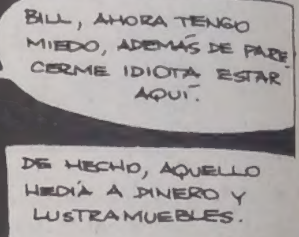 BILL, AHORA TENGO
MIEDO, ADEMÁS DE PARE
CERME IDIOTA ESTAR
AQUÍ.
DE HECHO, AQUELLO
HEDÍA A DINERO Y
LUSTRAMUEBLES.